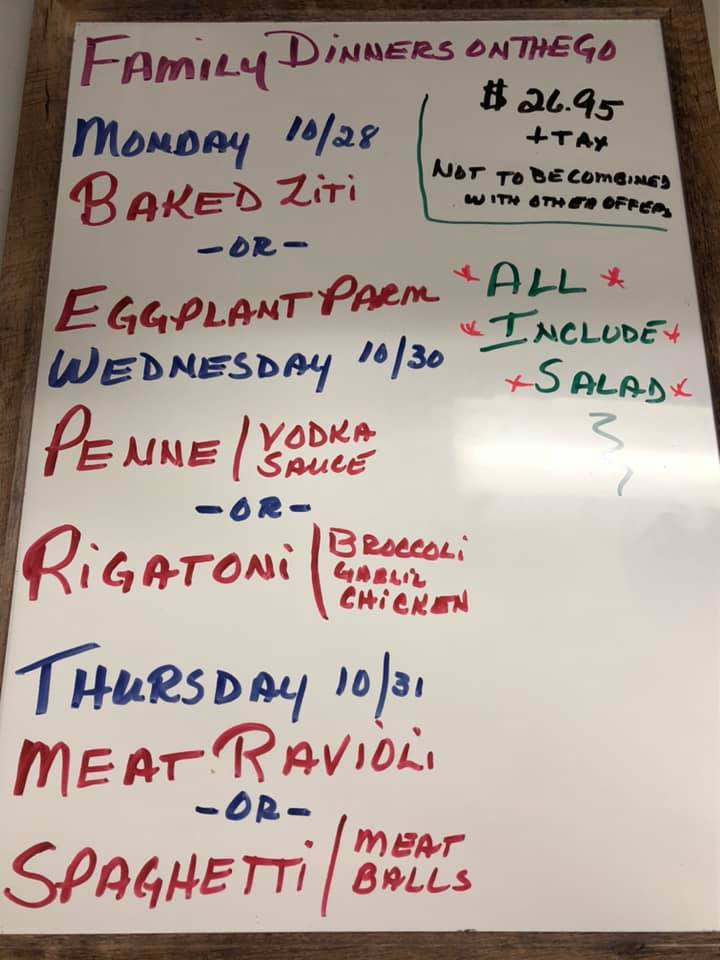 FAMILY DINNERS ON THE GO
$26.95
+ TAX
NOT TO BE COMBINED
WITH OTHER OFFERS
MONDAY 10/28
BAKED ZiTi
-OR-
EGGPLANT PARM
*ALL*
*INCLUDE*
*SALAD*
WEDNESDAY 10/30
PENNE / VODKA
SAUCE
-OR-
RiGATONi / BROCCOLi
GARLIC
CHiCKEN
THURSDAY 10/31
MEAT RAViOLi
-OR-
SPAGHETTi / MEAT
BALLS